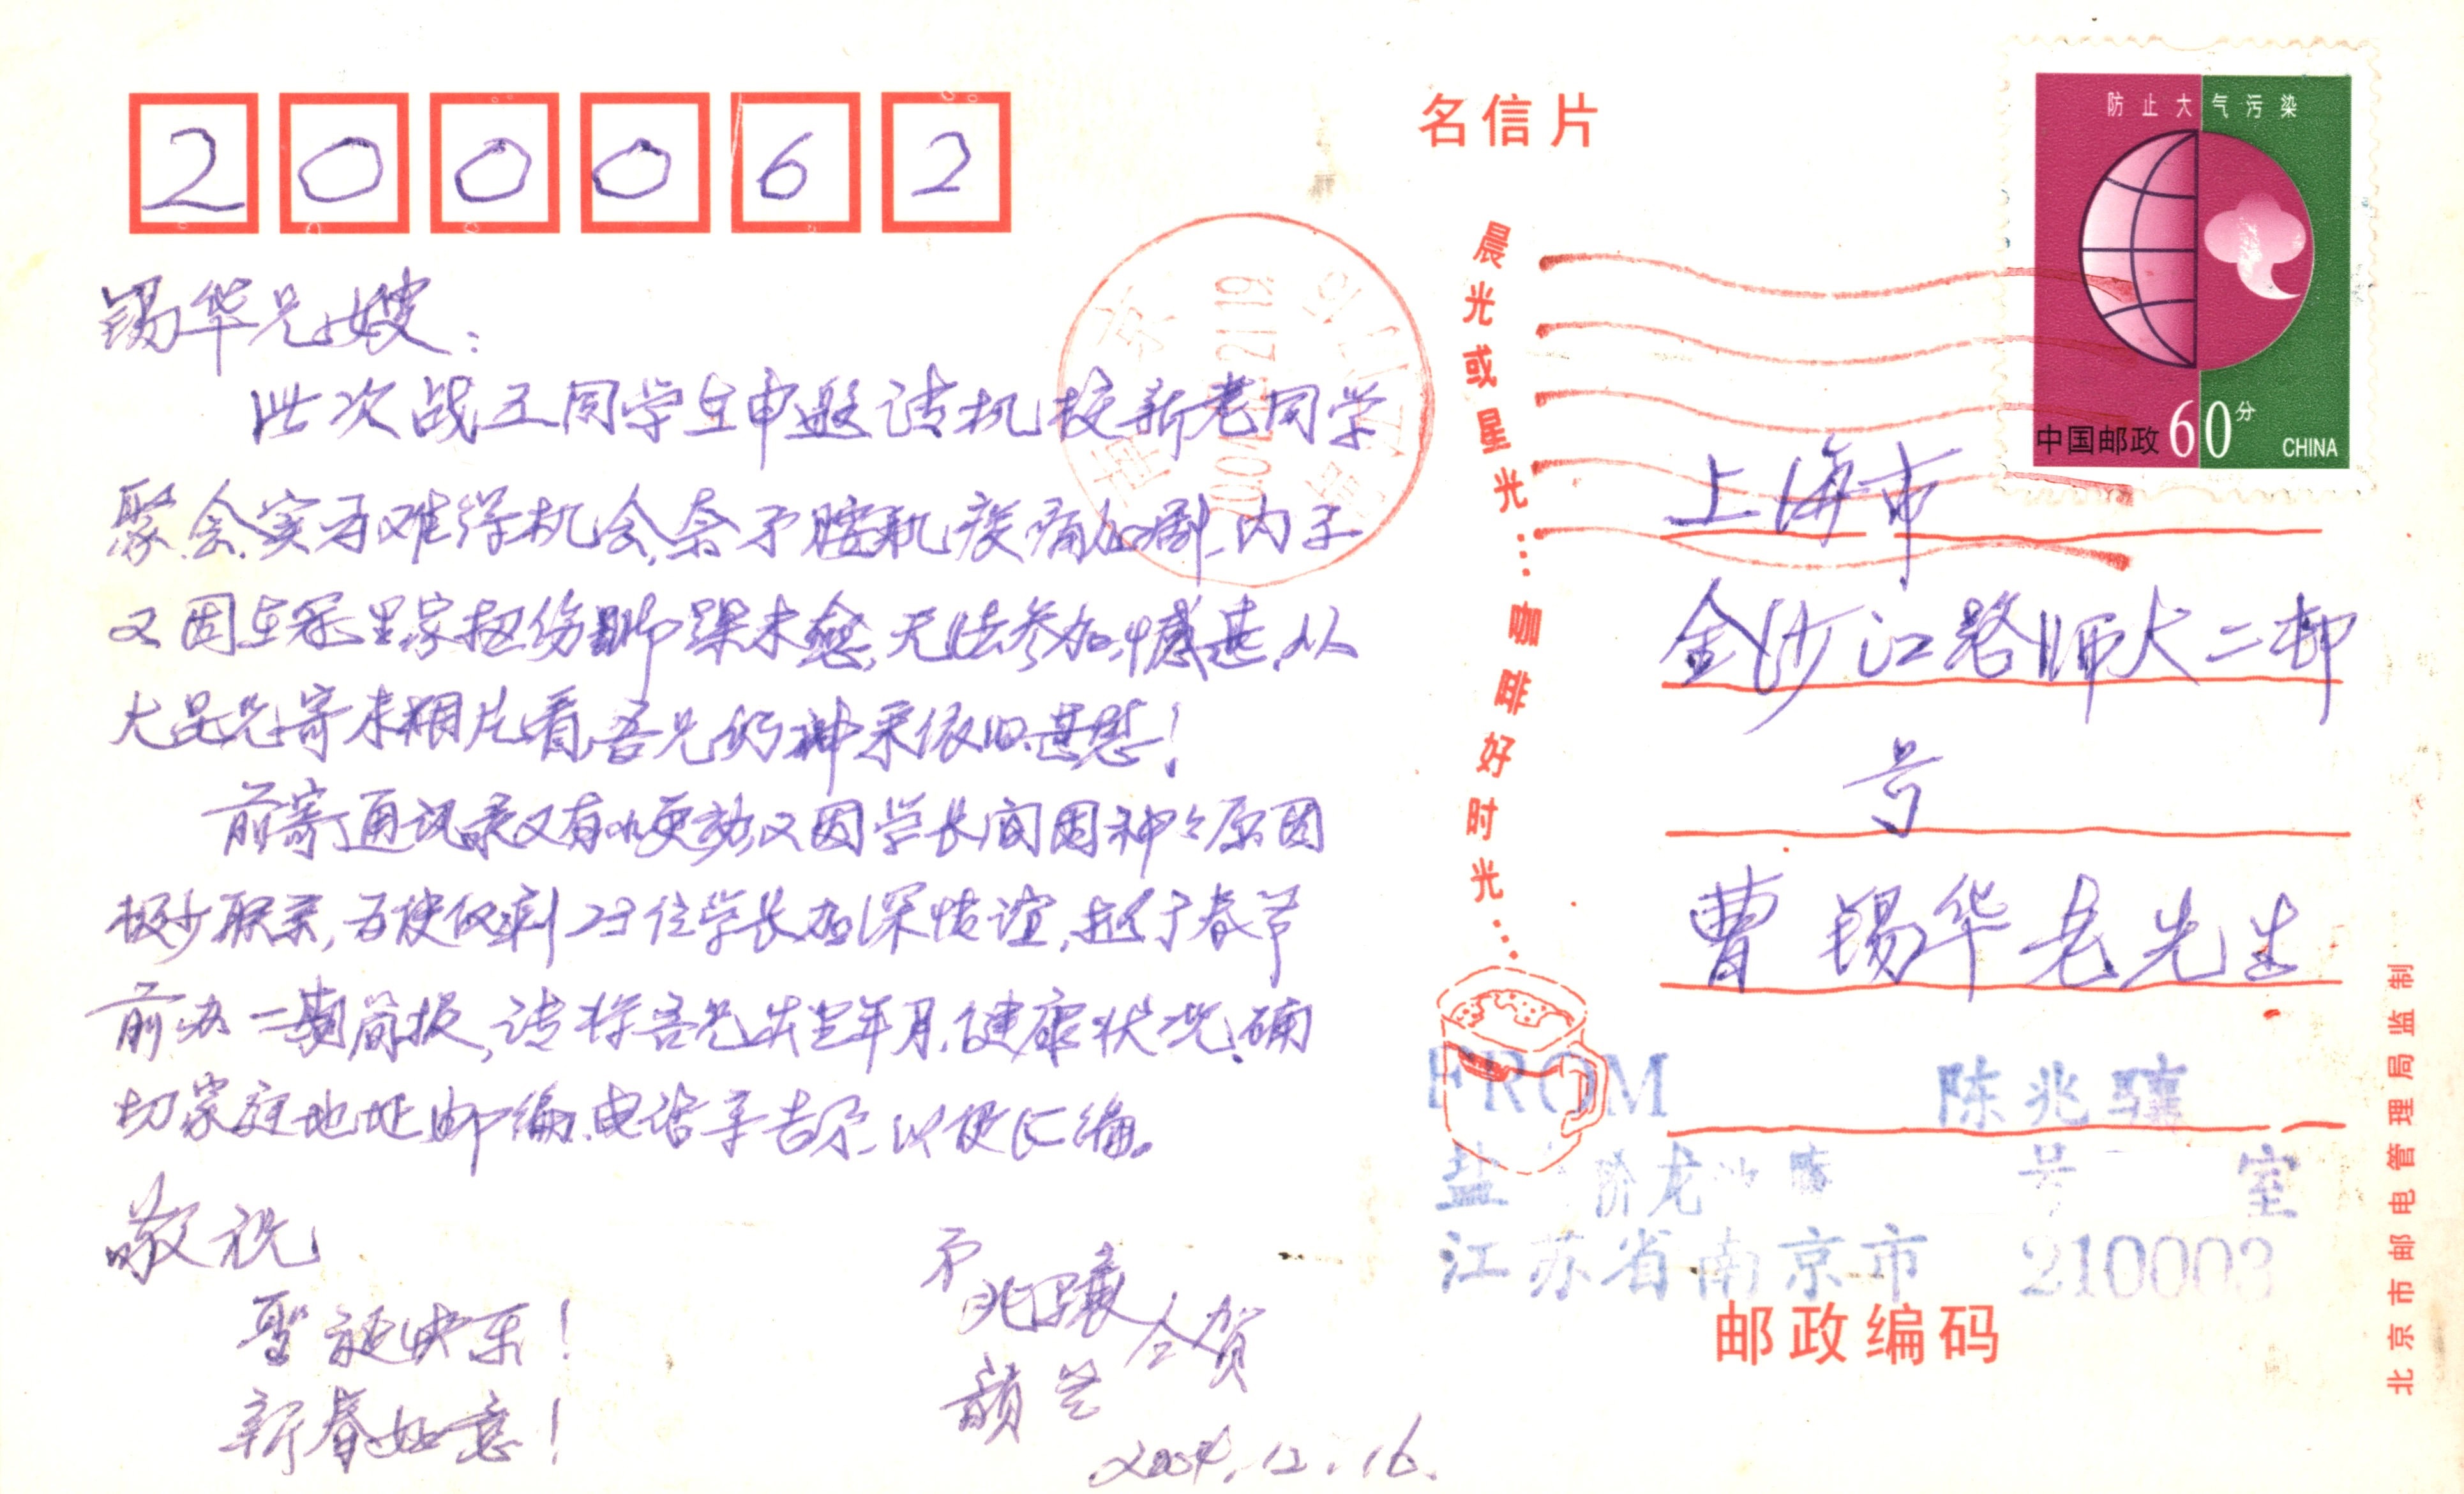 200062
名信片
防止大气污染
中国邮政 60分 CHINA
锡华兄嫂：
此次战工同学在申邀请机校新老同学
聚会实为难得机会,奈予腔肌疾痛加剧,内子
又因在家里家扭伤脚踝未愈,无法参加,憾甚,从
大品兄寄来相片看,吾兄仍神采依旧,甚慰!
前寄通讯录又有小更动,又因学长间因种々原因
极少联系,为使仅剩23位学长加深情谊,拟于春节
前办一期简报,请将吾兄出生年月,健康状况,确
切家庭地址邮编,电话等告予,以便汇编。
敬祝
圣诞快乐!
新春如意!
兆骧
韻兰 仝贺
2004.12.16.
晨光或星光…咖啡好时光…
上海市
金沙江路师大二村
号
曹锡华老先生
FROM 陈兆骧
号 室
江苏省南京市 210003
邮政编码
北京市邮电管理局监制